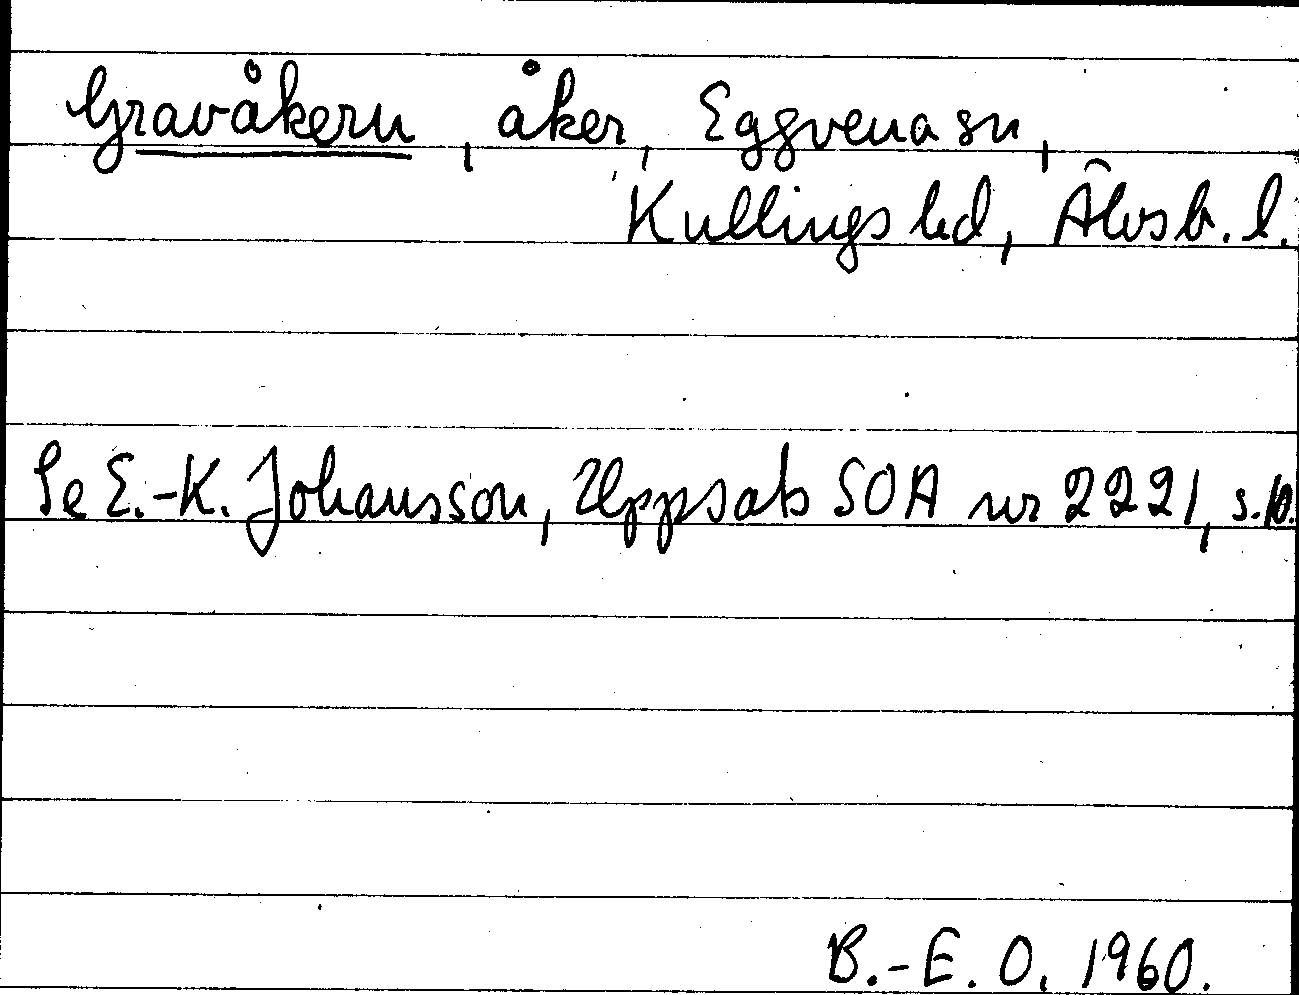 Gravåkern, åker, Eggvena sn,
Kullings hd, Älvsb. l.
Se E.-K. Johansson, Uppsats SOA nr 2221, s. 10.
B.-E. O. 1960.